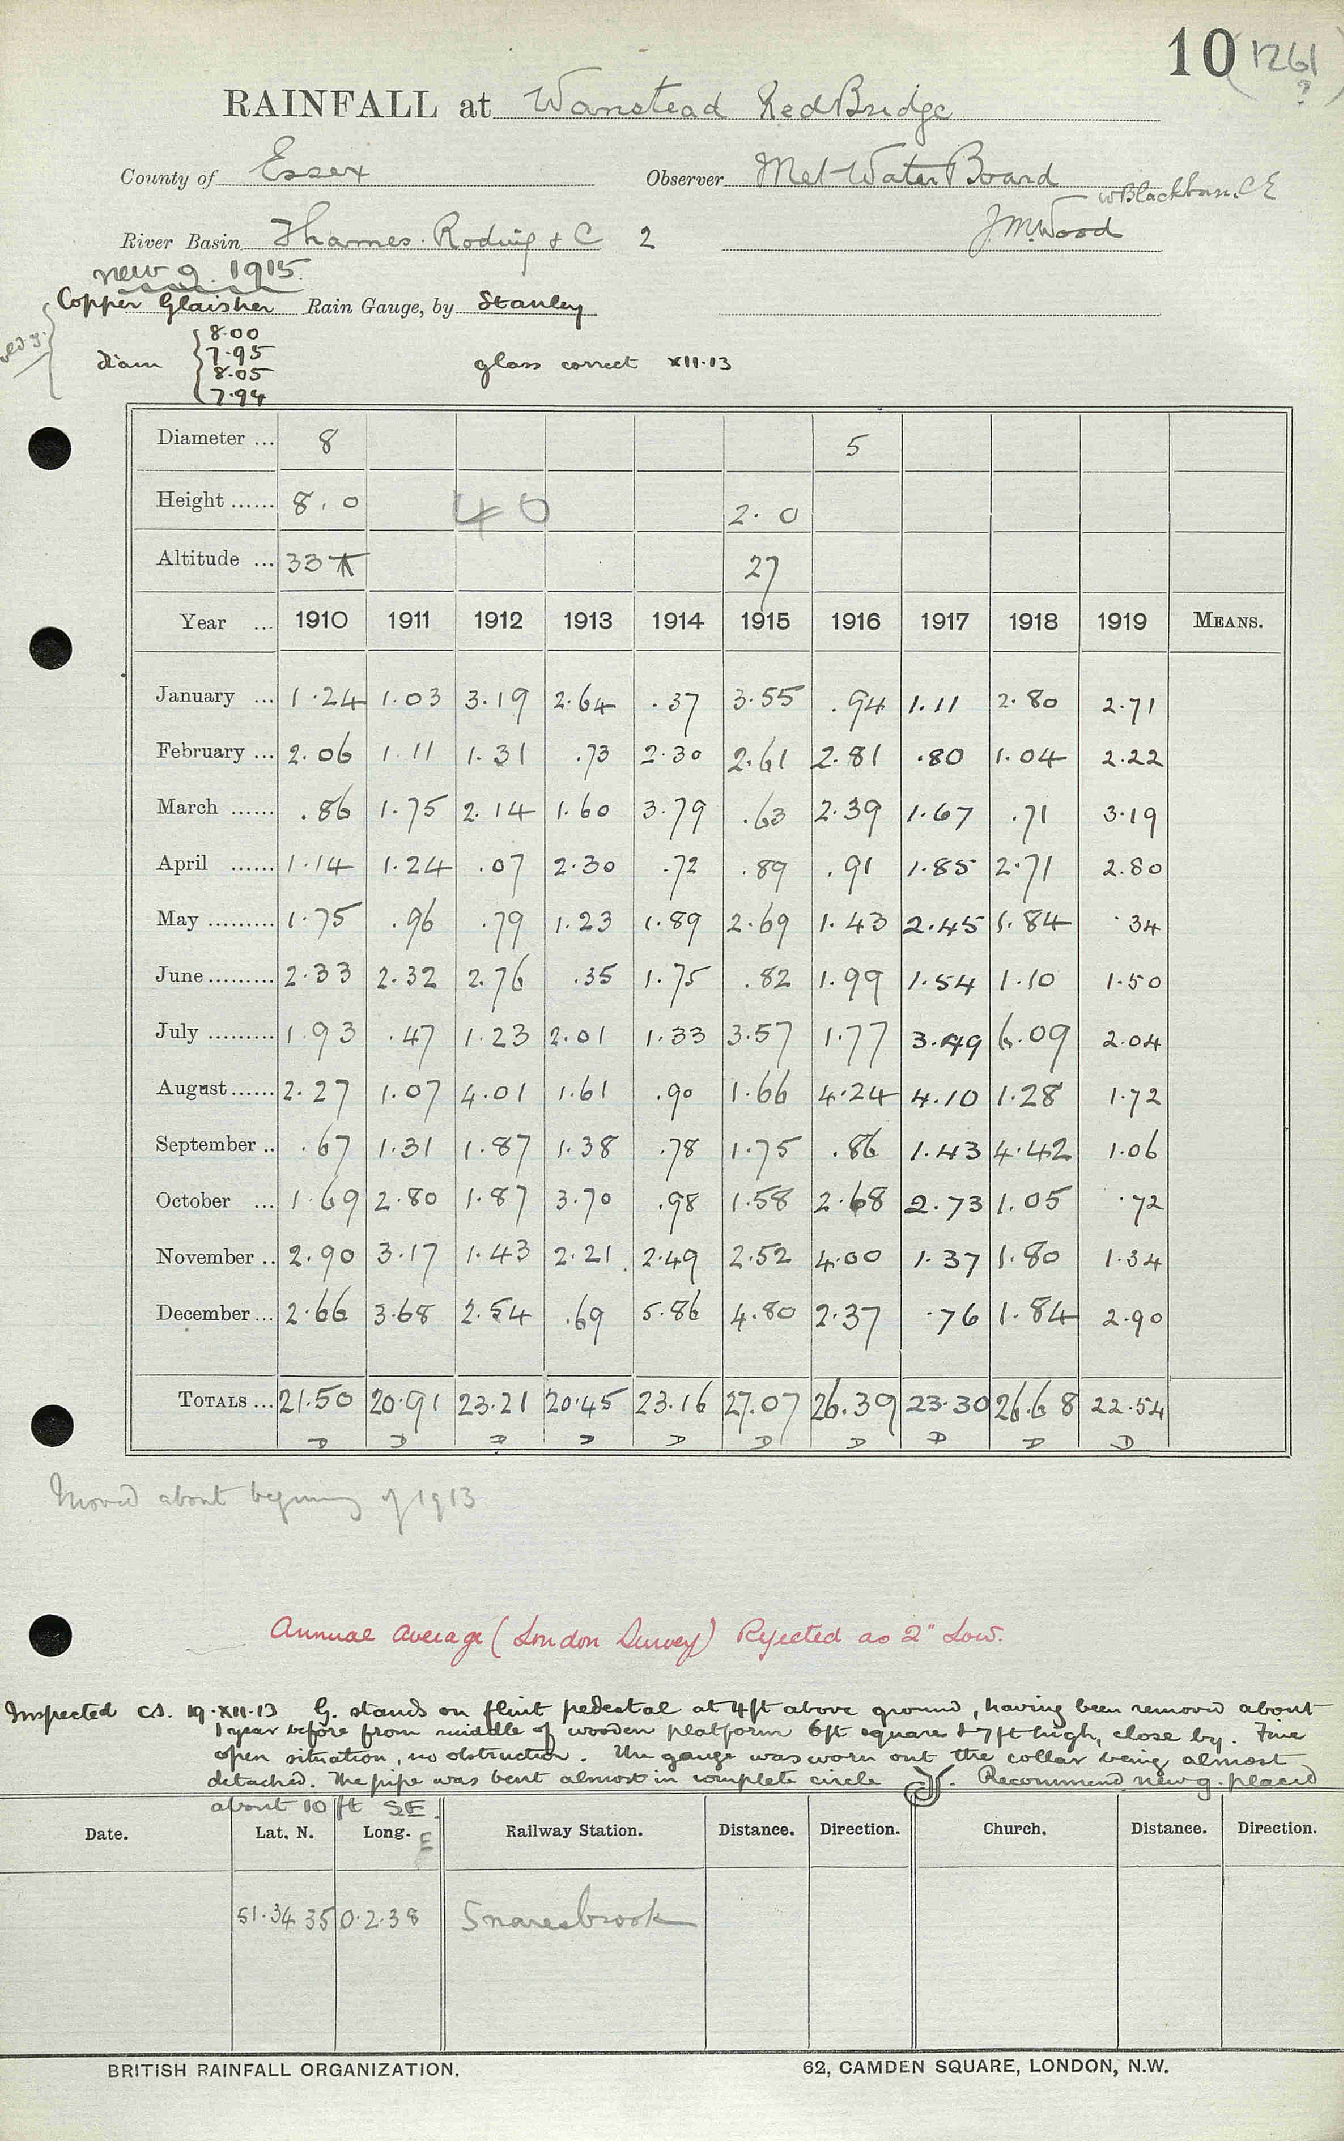 10 (1261
?
RAINFALL at Wanstead Red Bridge
County of Essex Observer Met Water Board
W Blackburn. C E
River Basin Thames. Roding & C 2 J. M. Wood
new g. 1915.
Copper Glaisher Rain Gauge, by Stanley
old g.
diam { 8.00 glass correct XII.13
7.95
8.05
7.94
Diameter ... 8 5
Height ...... 8. 0 40 2. 0
Altitude ... 33 27
Year ... 1910 1911 1912 1913 1914 1915 1916 1917 1918 1919 MEANS.
January ... 1.24 1.03 3.19 2.64 .37 3.55 .94 1.11 2.80 2.71
February ... 2.06 1.11 1.31 .73 2.30 2.61 2.81 .80 1.04 2.22
March ...... .86 1.75 2.14 1.60 3.79 .63 2.39 1.67 .71 3.19
April ...... 1.14 1.24 .07 2.30 .72 .89 .91 1.85 2.71 2.80
May ......... 1.75 .96 .79 1.23 1.89 2.69 1.43 2.45 1.84 .34
June ......... 2.33 2.32 2.76 .35 1.75 .82 1.99 1.54 1.10 1.50
July ......... 1.93 .47 1.23 2.01 1.33 3.57 1.77 3.49 6.09 2.04
August ...... 2.27 1.07 4.01 1.61 .90 1.66 4.24 4.10 1.28 1.72
September .. .67 1.31 1.87 1.38 .78 1.75 .86 1.43 4.42 1.06
October ... 1.69 2.80 1.87 3.70 .98 1.58 2.68 2.73 1.05 .72
November .. 2.90 3.17 1.43 2.21 2.49 2.52 4.00 1.37 1.80 1.34
December ... 2.66 3.68 2.54 .69 5.86 4.80 2.37 .76 1.84 2.90
TOTALS ... 21.50 20.91 23.21 20.45 23.16 27.07 26.39 23.30 26.68 22.54
D D D D D D D D D D
Moved about beginning of 1913
Annual Average (London Survey) Rejected as 2" Low.
Inspected C.S. 19.XII.13 G. stands on flint pedestal at 4ft above ground, having been removed about
1 year before from middle of wooden platform 6ft square & 7ft high, close by. Fine
open situation, no obstruction. The gauge was worn out the collar being almost
detached. The pipe was bent almost in complete circle. Recommend new g. placed
about 10 ft SE.
Date. Lat. N. Long. E Railway Station. Distance. Direction. Church. Distance. Direction.
51.34 35 0.2.38 Snaresbrook
BRITISH RAINFALL ORGANIZATION. 62, CAMDEN SQUARE, LONDON, N.W.